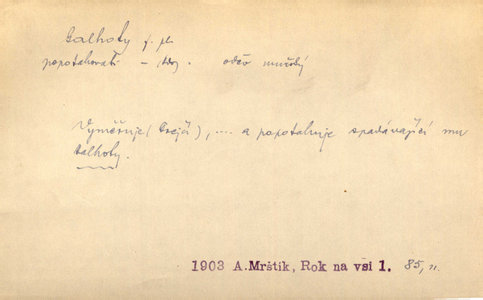 galhoty f. pl.
popotahovati – . oděv mužský
Vyměřuje (krejčí), .... a popotahuje spadávající mu
galhoty.
1903 A. Mrštík, Rok na vsi 1. 85, n.